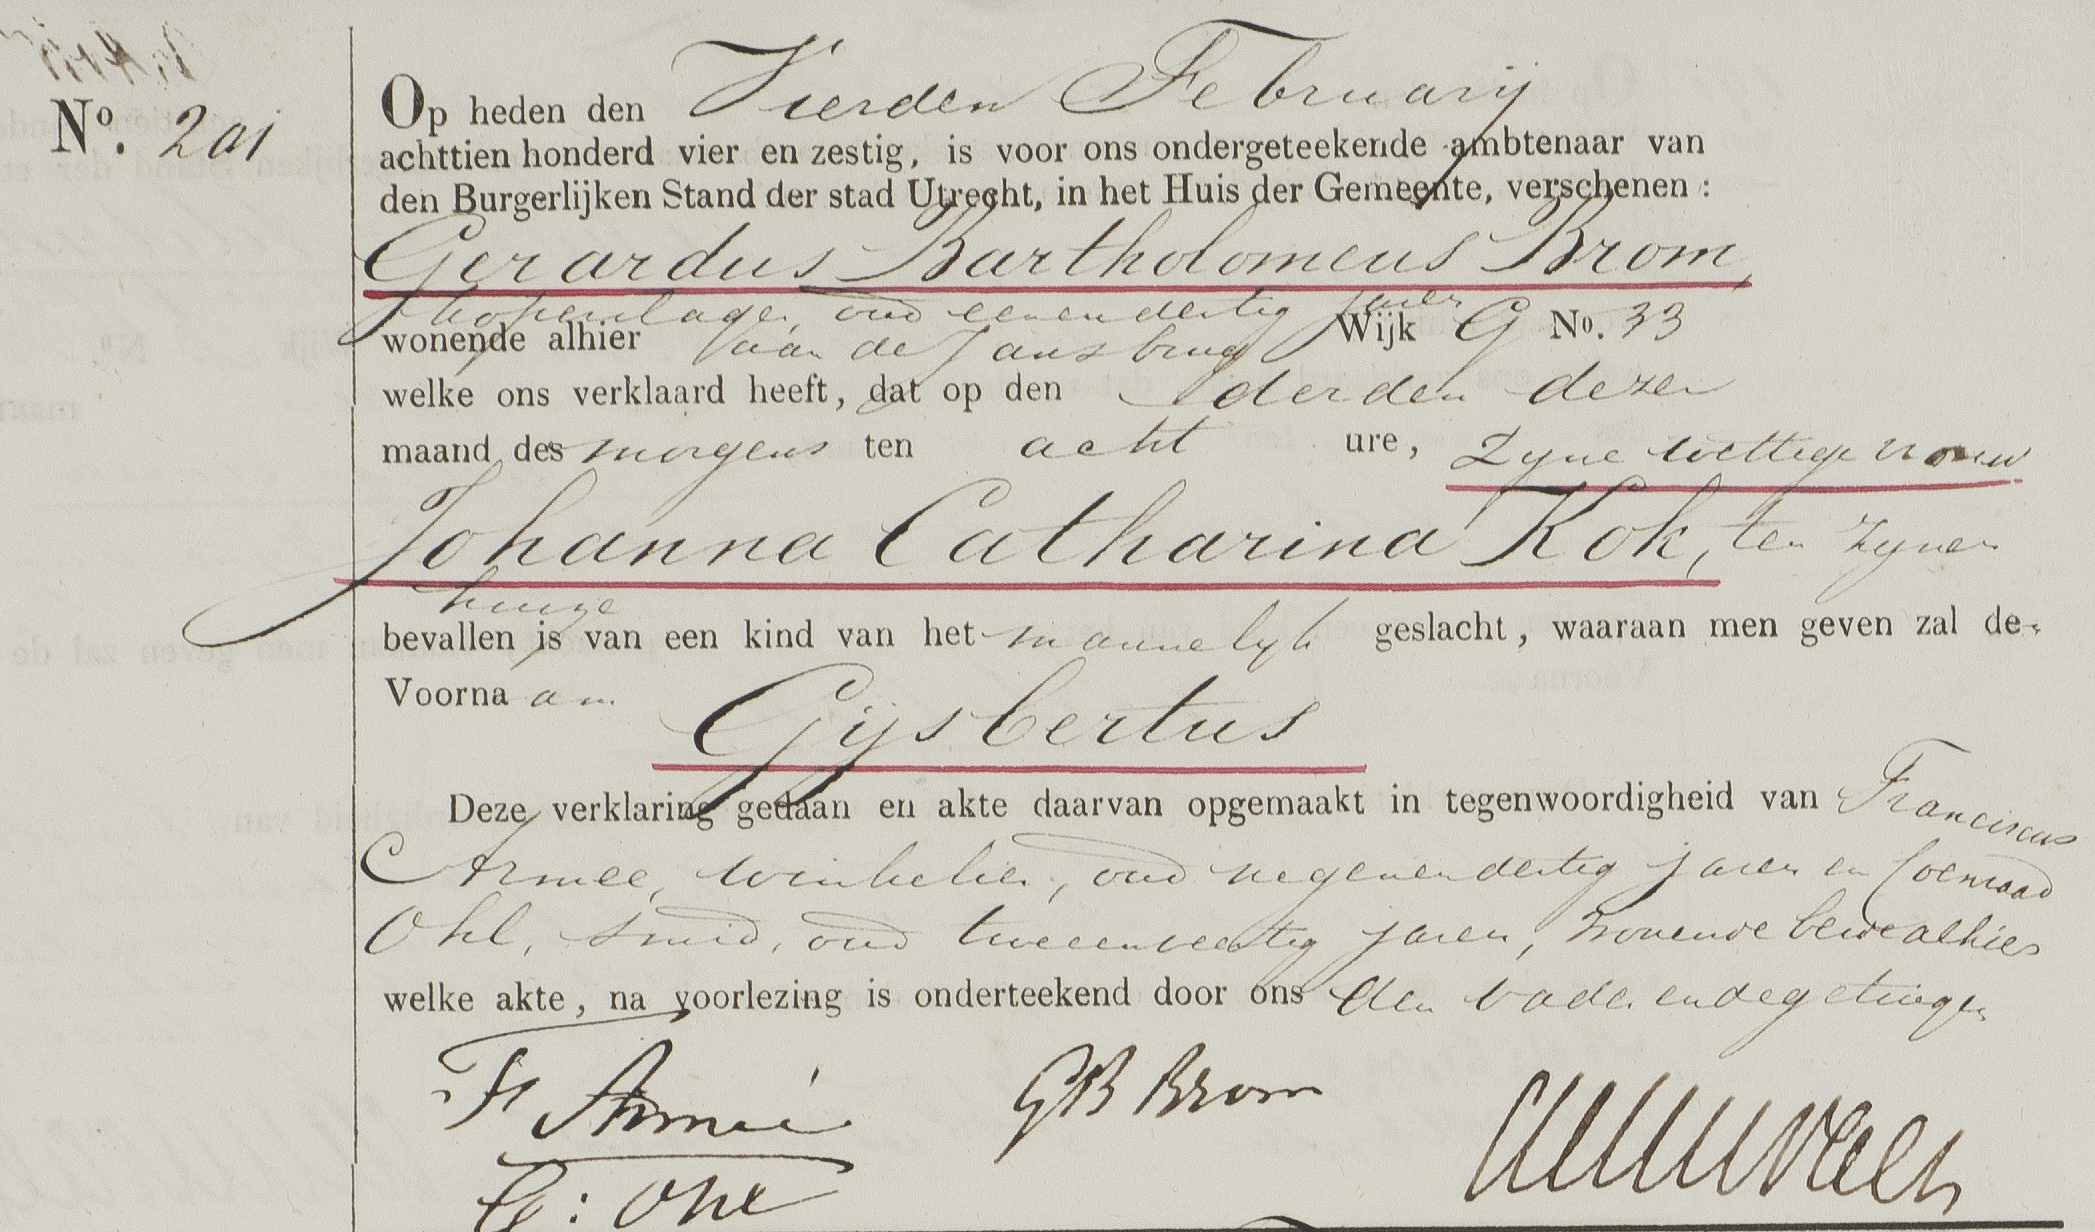 No. 201
Op heden den Vierden Februarij
achttien honderd vier en zestig, is voor ons ondergeteekende ambtenaar van
den Burgerlijken Stand der stad Utrecht, in het Huis der Gemeente, verschenen :
Gerardus Bartholomeus Brom,
koperslager, oud eenendertig jaren
wonende alhier aan de Jansbrug Wijk G No. 33
welke ons verklaard heeft, dat op den derden dezer
maand des morgens ten acht ure, zyne wettige vrouw
Johanna Catharina Kok, ten zynen
huize
bevallen is van een kind van het mannelyk geslacht, waaraan men geven zal de
Voorna am
Gijsbertus
Deze verklaring gedaan en akte daarvan opgemaakt in tegenwoordigheid van Franciscus
Armée, winkelier, oud negenendertig jaren en Coenraad
Ohl, smid, oud tweeenveertig jaren, wonende beide alhier
welke akte, na voorlezing is onderteekend door ons den vader en de getuigen
Fr Armée GB Brom
C: Ohl